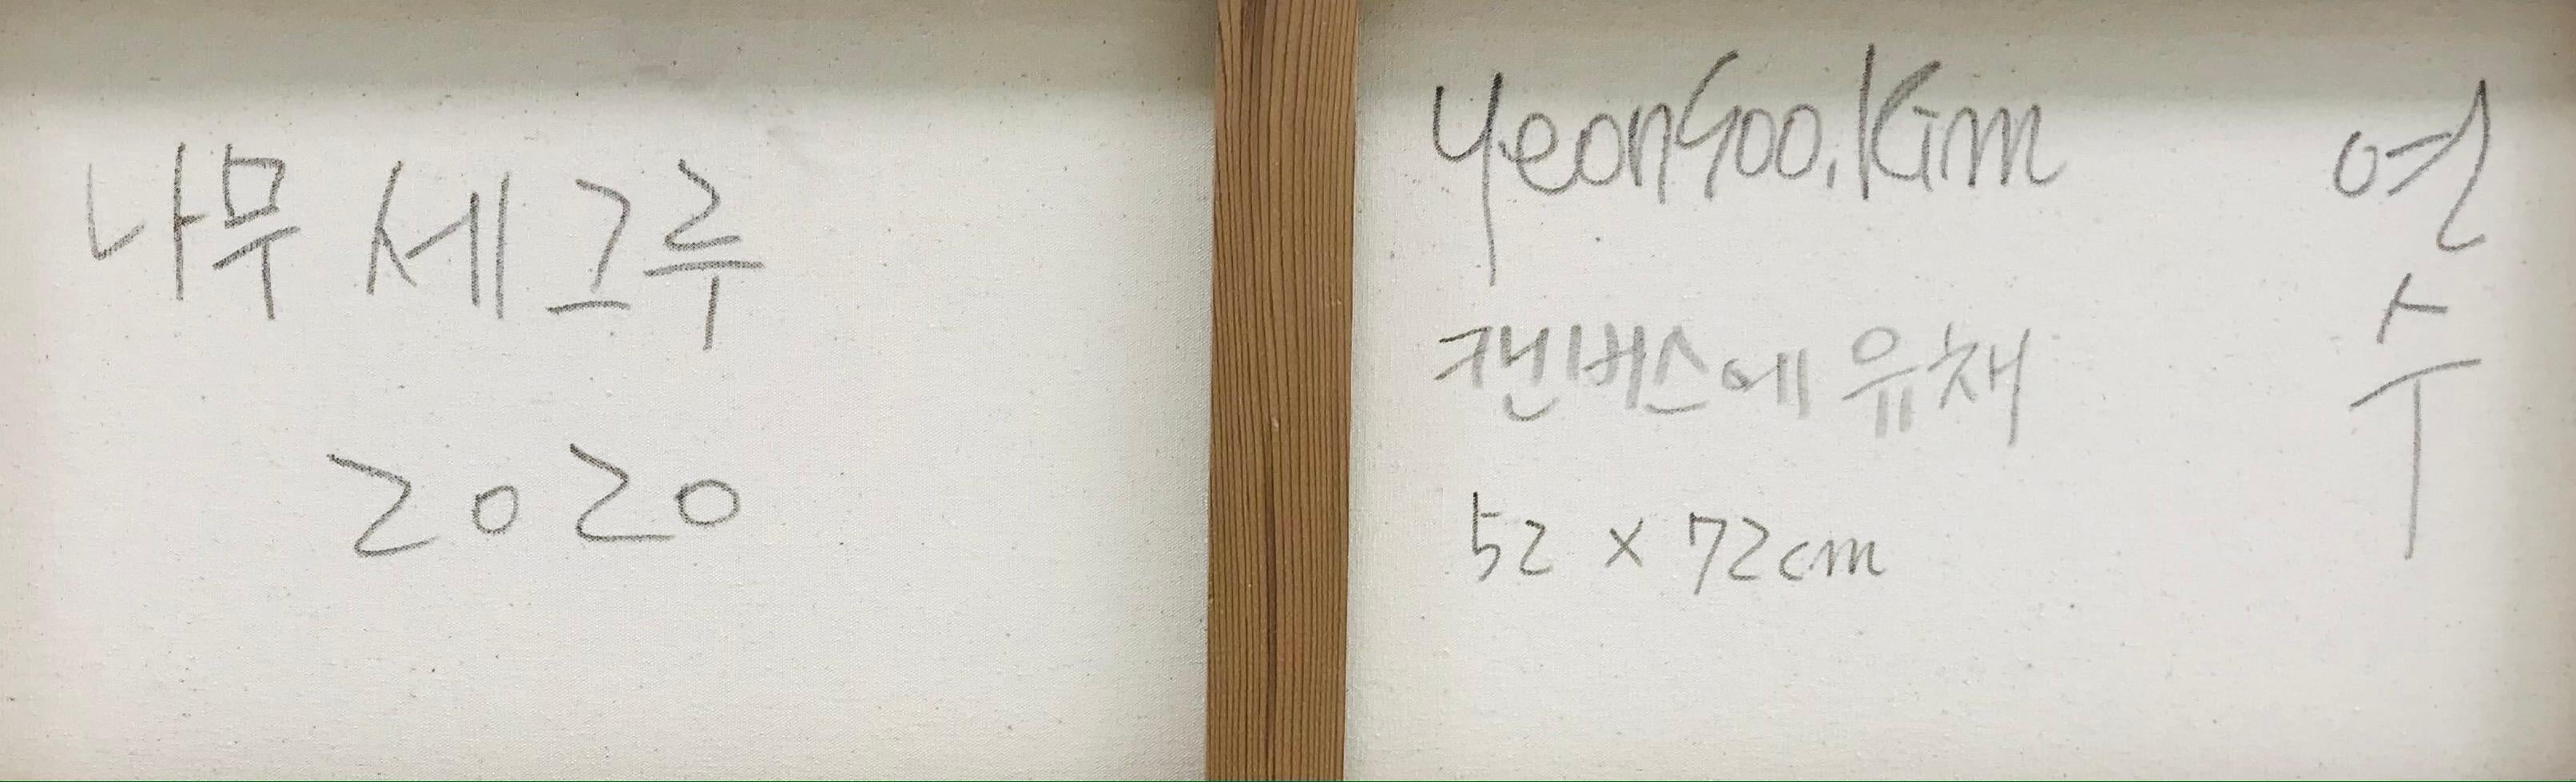 나무 세 그루
2020
YeonSoo.Kim
캔버스에 유채
52 x 72cm
연
수